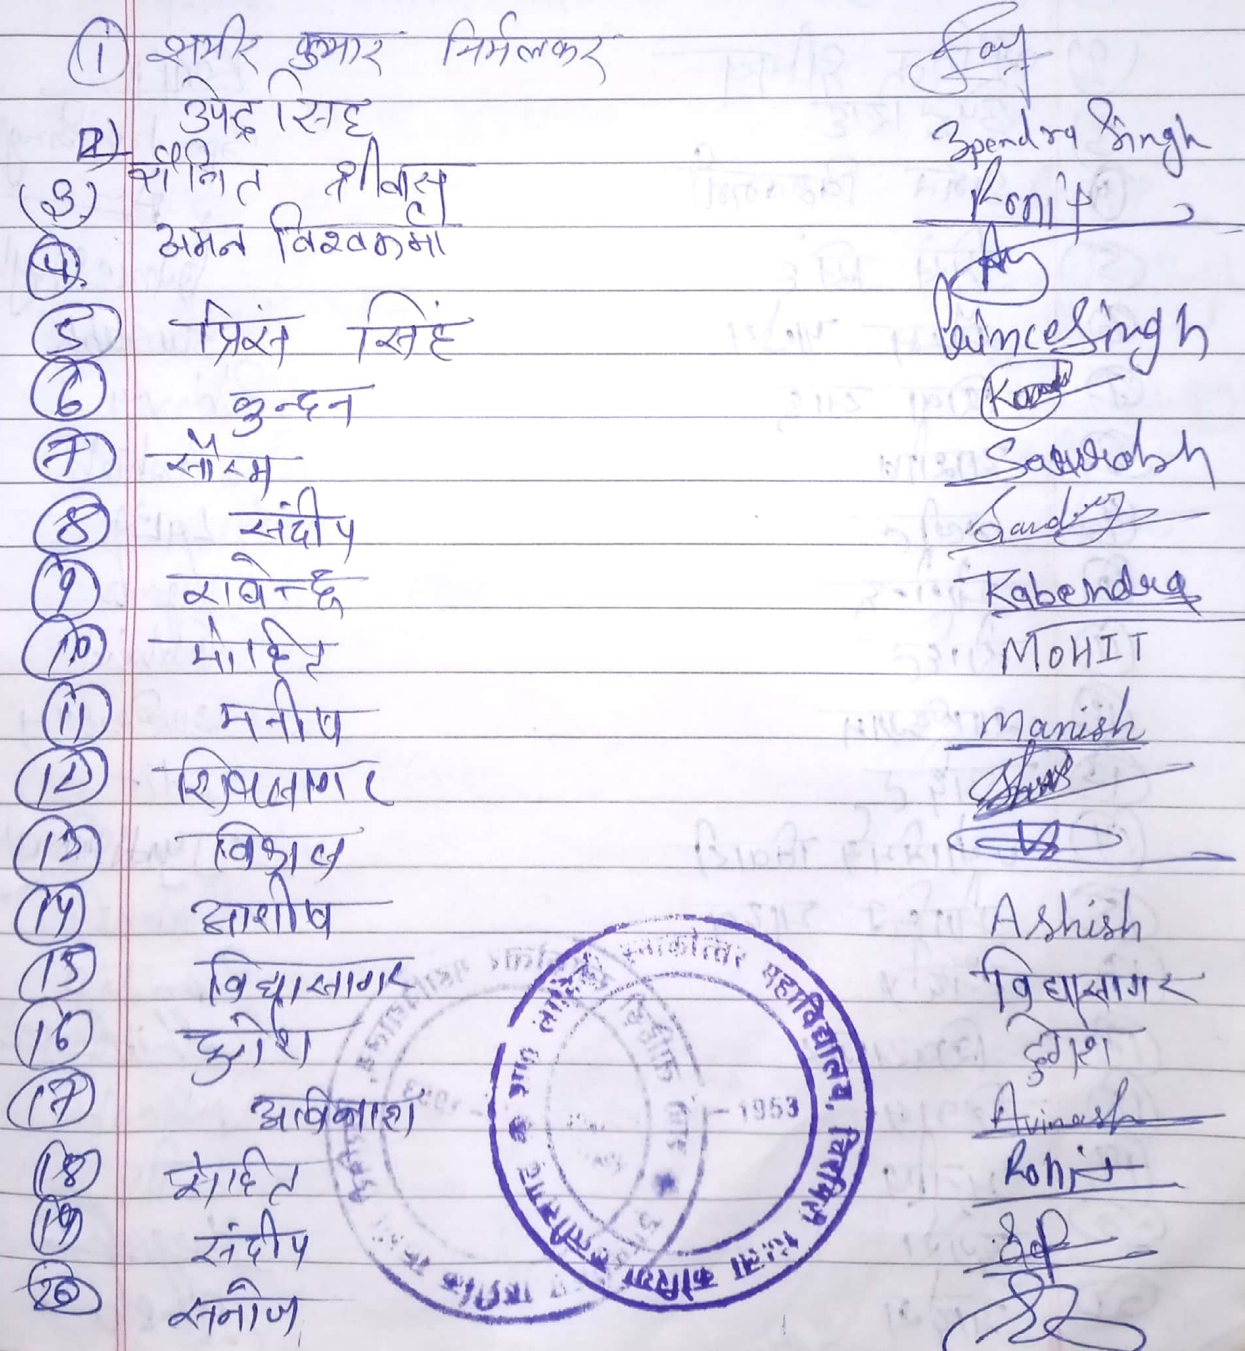 ① शमीर कुमार निर्मलकर
2) उपेन्द्र सिंह Upendra Singh
(3) रोनित श्रीवास Ronit
④ अमन विश्वकर्मा
⑤ प्रिंस सिंह Prince Singh
⑥ कुन्दन
⑦ सौरभ Saurabh
⑧ संदीप Sandeep
⑨ राबेन्द्र Rabendra
⑩ मोहित MOHIT
⑪ मनीष Manish
⑫ शिवसागर
⑬ विशाल
⑭ आशीष Ashish
⑮ विद्यासागर विद्यासागर
⑯ दुर्गेश दुर्गेश
⑰ अविनाश Avinash
⑱ रोहित Rohit
⑲ संदीप
⑳ मनोज
स्नातकोत्तर महाविद्यालय, चिरमिरी जिला कोरिया छत्तीसगढ़
1953